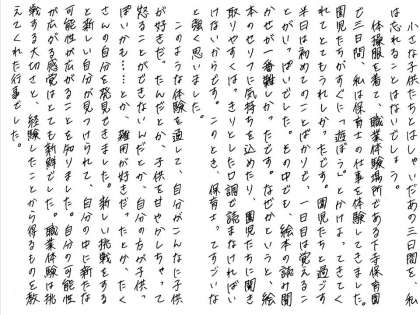 小さな子供たちとの忙しい、あの三日間を、私
は忘れることがないでしょう。
体操服を着て、職業体験場所である下寺保育園
で三日間、私は保育士の仕事を体験してきました。
園児たちがすぐに「遊ぼう」とかけよってきてく
れてとてもうれしかったです。園児たちと過ごす
半日は初めてのことばかりで、一日目は覚えるこ
とがいっぱいでした。その中でも、絵本の読み聞
かせが一番難しかったです。なぜかというと、絵
本のセリフに気持ちを込めたり、園児たちに聞き
取りやすく、はきりとした口調で読まなければいけ
ないからです。このとき、保育士ってすごいな
と強く思いました。
このような体験を通して、自分がこんなに子供
が好きだったんだとか、子供を甘やかしちゃって
怒ることができないんだとか、自分の方が子供っ
ぽいかも…とか、雑用が好きだったとか、たく
さんの自分を発見できました。新しい挑戦をする
と新しい自分が見つけられて、自分の中に新たな
可能性が広がることを知りました。自分の可能性
が広がる感覚はとても新鮮でした。職業体験は挑
戦する大切さと、経験したことから得るものを教
えてくれた行事でした。